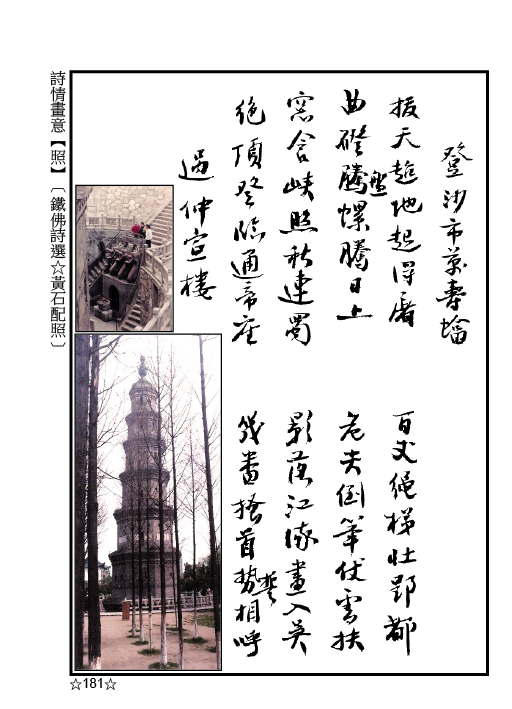 登沙市萬壽墖
拔天地起浮屠 百丈繩梯壯郢都
曲磴騰螺騰日上 危尖倒筆伏雲扶
盤
窓含峽照秋連蜀 影落江流畫入吳
絕頂登臨通帝座 幾番搔首勢相呼
過仲宣樓
詩情畫意【照】〔鐵佛詩選☆黃石配照〕
☆181☆